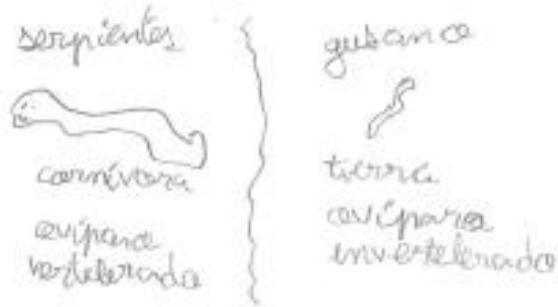 serpientes
carnívora
ovípara
vertelerada
gusano
tierra
ovípara
invertelerado